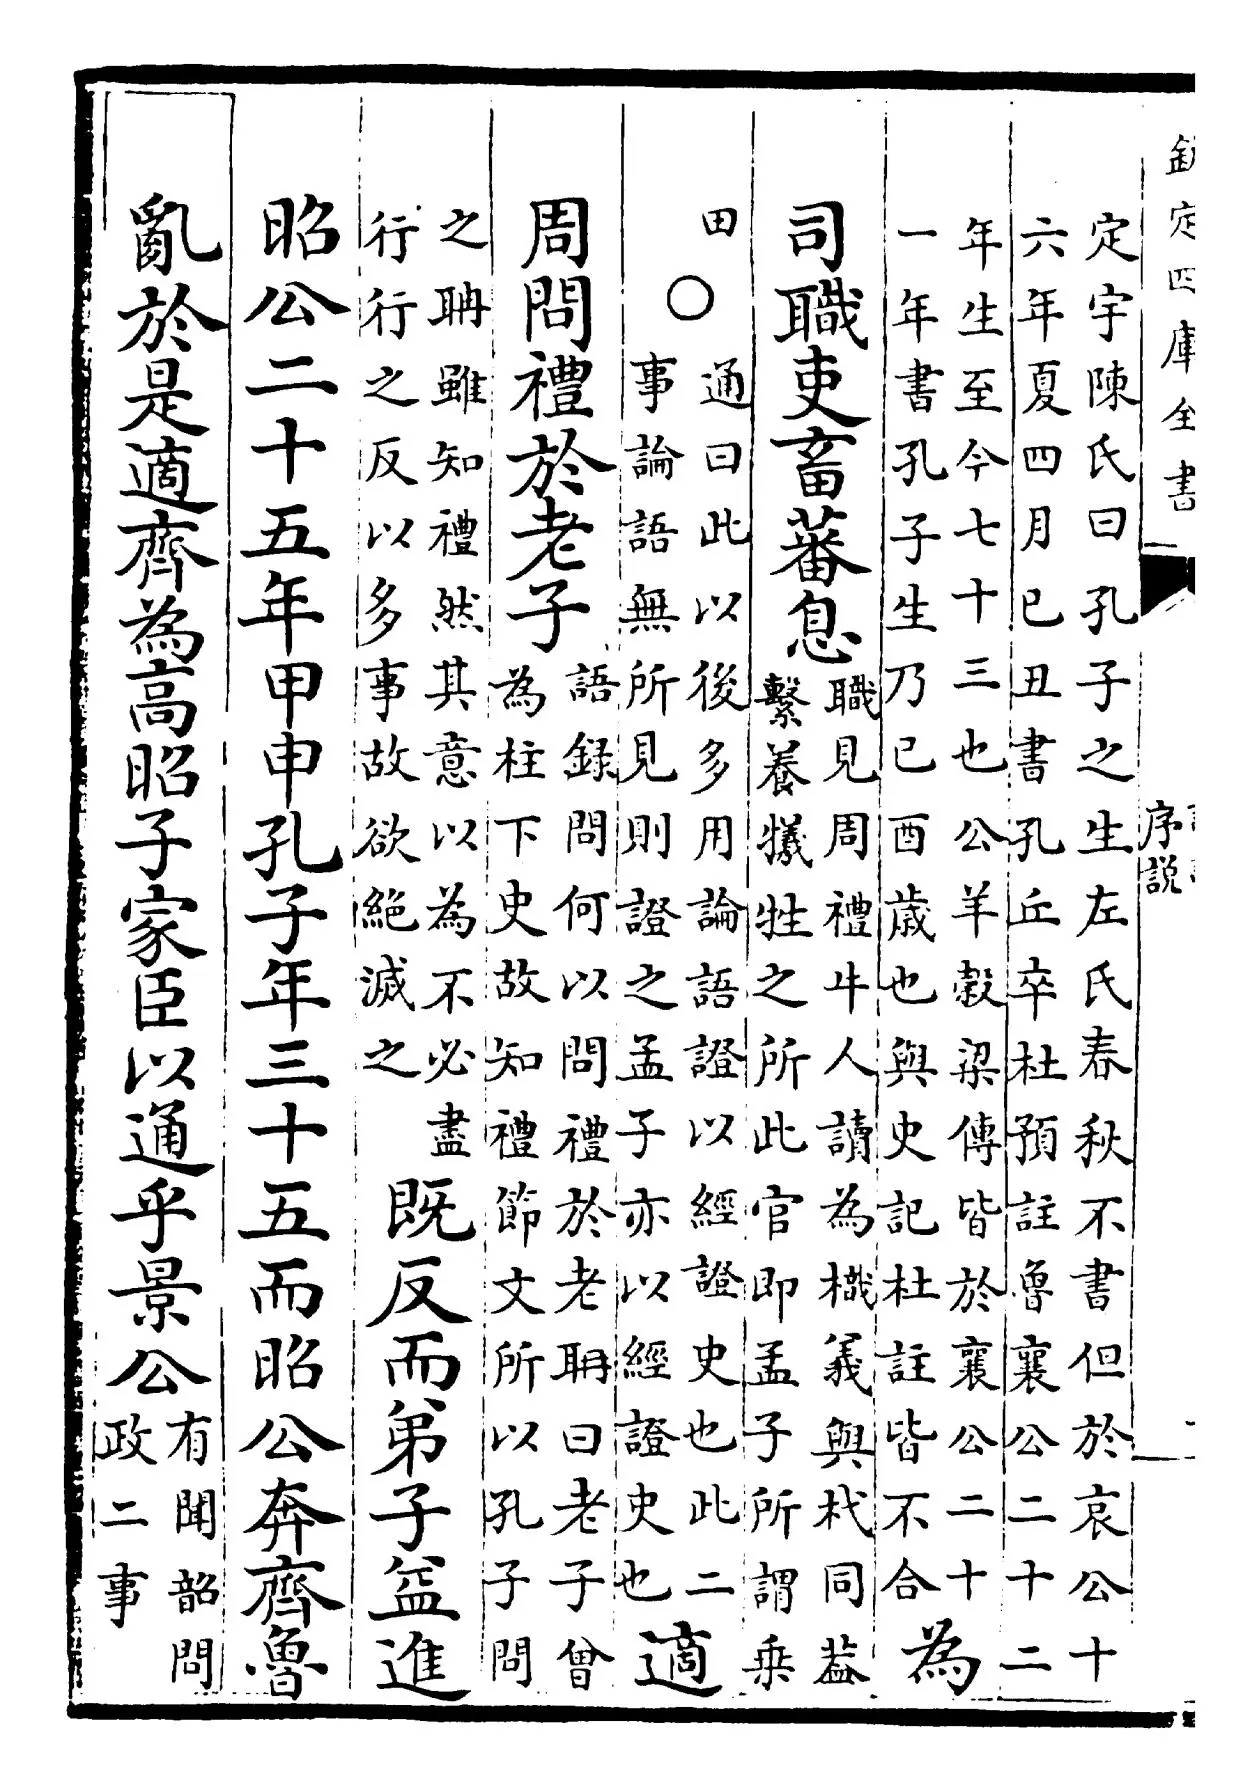 欽定四庫全書
序説
定宇陳氏曰孔子之生左氏春秋不書但於哀公十
六年夏四月已丑書孔丘卒杜預註魯襄公二十二
年生至今七十三也公羊榖梁傳皆於襄公二十
一年書孔子生乃已酉歳也與史記杜註皆不合
為
司職吏畜蕃息
職見周禮牛人讀為樴義與杙同葢
繫養犧牲之所此官即孟子所謂乗
田
○
通曰此以後多用論語證以經證史也此二
事論語無所見則證之孟子亦以經證史也
適
周問禮於老子
語録問何以問禮於老耼曰老子曾
為柱下史故知禮節文所以孔子問
之耼雖知禮然其意以為不必盡
行行之反以多事故欲絶滅之
既反而弟子益進
昭公二十五年甲申孔子年三十五而昭公奔齊魯
亂於是適齊為高昭子家臣以通乎景公
有聞韶問
政二事